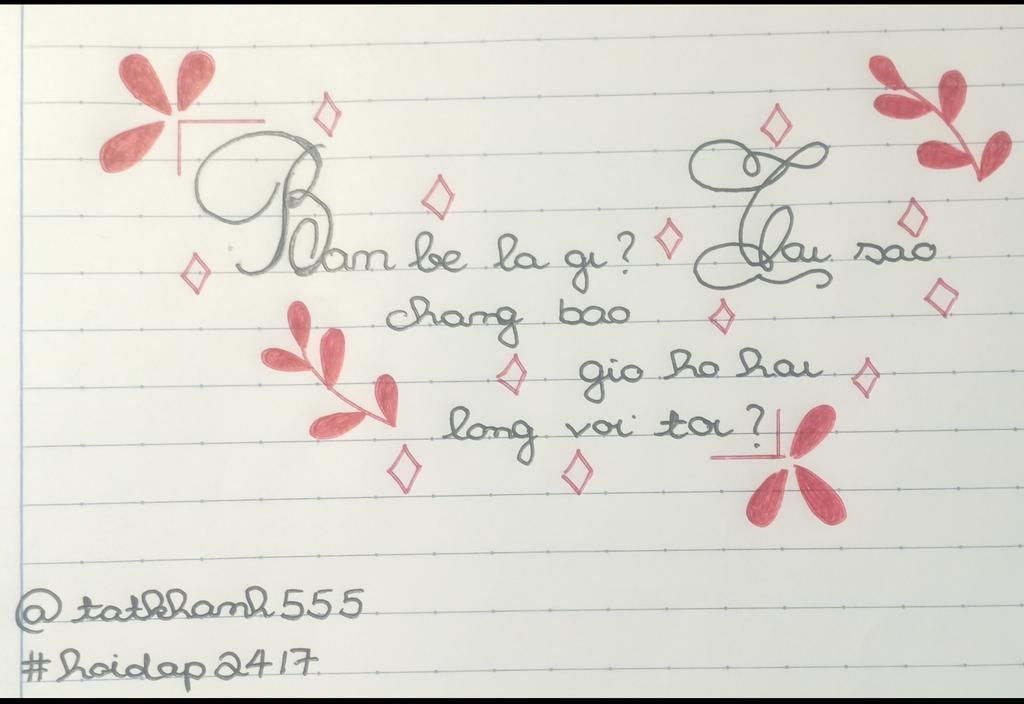 Ban be la gi? Tai sao
chang bao
gio ho hai
long voi toi?
@tatkhanh555
#hoidap2417